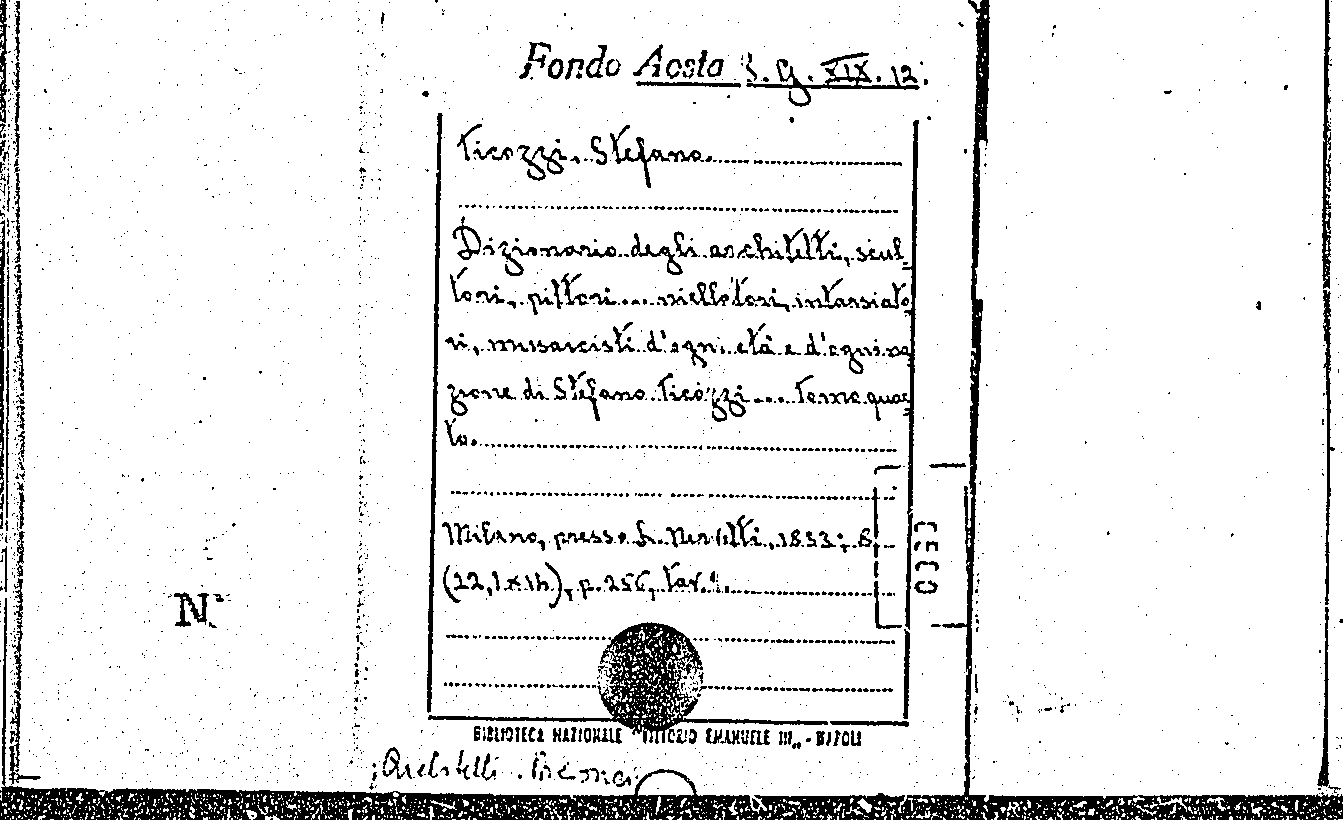 Fondo Aosta S. G. XIX. 12.
Ticozzi, Stefano.
Dizionario degli architetti, scul-
tori, pittori... niellatori, intarsiato-
ri, musaicisti d'ogni età e d'ogni na-
zione di Stefano Ticozzi... Tomo quar-
to.
Milano, presso L. Nervetti, 1833; 8.
(22,1x14), p. 256, tav. 1.
0333
N.°
BIBLIOTECA NAZIONALE "VITTORIO EMANUELE III„ - NAPOLI